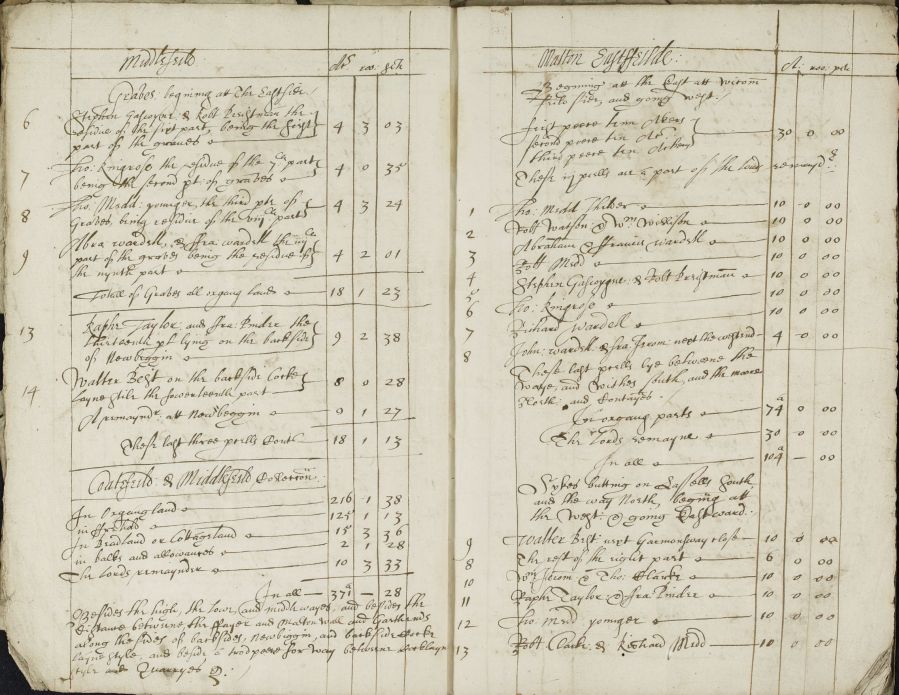 Middlefeild Ac roo: pch
Graves: begining at the East side.
6 Stephen Gascoyne & Robt Priestman the
residue of the sixt part, being the first 4 3 03
part of the graves
7 Tho: Kingrose the residue of the 7th part 4 0 35
being the second pt. of graves
8 Tho. Medd: younger, the third pte of 4 3 24
Graves, being residue of the part
9 Abra: Wardell, & ffra: wardell the
part of the graves being the residue of 4 2 01
the nynth part
Totall of Graves all organg lands 18 1 23
13 Raphe Taylor, and ffra: Pindre the
thirteenth pt lying on the backside 9 2 38
of Newbeggin
14 Walter Best on the backside Locke
layne stile the fowerteenth part 8 0 28
A remayndr. at Newbeggin 9 1 27
These last three pcells Cont 18 1 13
Coatefeild & Middlefeild
In Organgland 216 1 38
125 1 13
In Bradland or Cottagland 15 3 36
in balks and allowances 2 1 28
The Lords remaynder 10 3 33
In all 371 – 28
Besides the high, the low, and middle wayes, and besides the
distance betweene the and Malton wall and Garthends
along the sides of backsides, Newbiggin, and backside Locke
layne style, and beside a rodpeece for way betweene Locklayn
style and Quarryes
Malton Eastfeilde: A: roo: pch
Begining att the East att
side, and going west:
first peece tenn Akers
second peece ten Ac 30 0 00
third peece ten
These iij pcells are a part of the lords remaynd:
1 Tho: Medd 10 0 00
2 Robt Watson & Wm 10 0 00
3 Abraham & ffrancis Wardell 10 0 00
4 Robt Medd 10 0 00
5 Stephen Gascoyne & Robt Preistman 10 0 00
6 Tho: Kingrose 10 0 00
7 Richard Wardell 10 0 00
8 John: wardell & ffra: Jerom next the westend 4 0 00
These last pcells lye betweene the
Waye, and south, and the moore
North: and Conteyns
In organg parts 74 0 00
The Lords remayne 30 0 00
In all 104 – 00
Sykes butting on south
and the way North, begining at
the West: & going Eastward:
9 Walter Best: next Garmonsway close 10 0 00
8 The rest of the eight part 6 0 00
10 Wm Jerom & Tho: Clarke 10 0 00
11 Raphe Taylor & ffra: Pindre 10 0 00
12 Tho Medd younger 10 0 00
13 Robt Clark: & Richard Medd 10 0 00